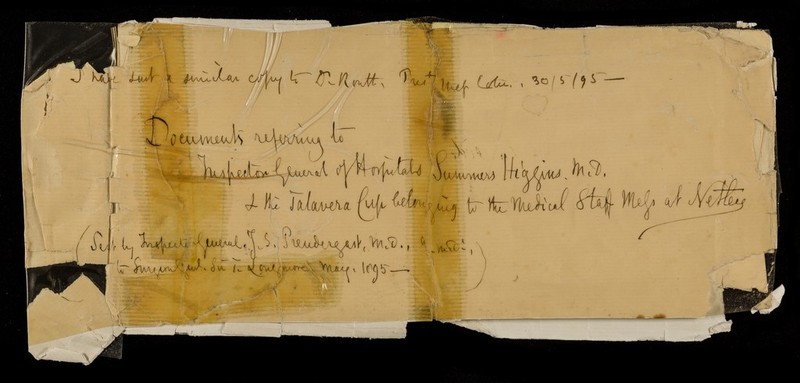 I have sent a similar copy to Dr. Routh, Prest. Mess Com., 30/5/95—
Documents referring to
Inspector General of Hospitals Summers Higgins. M.D.
& the Talavera Cup belonging to the Medical Staff Mess at Netley
(Sent by Inspector General, J. S. Prendergast, M.D.,
to Surgeon Genl. Sir T. Longmore. May. 1895—)